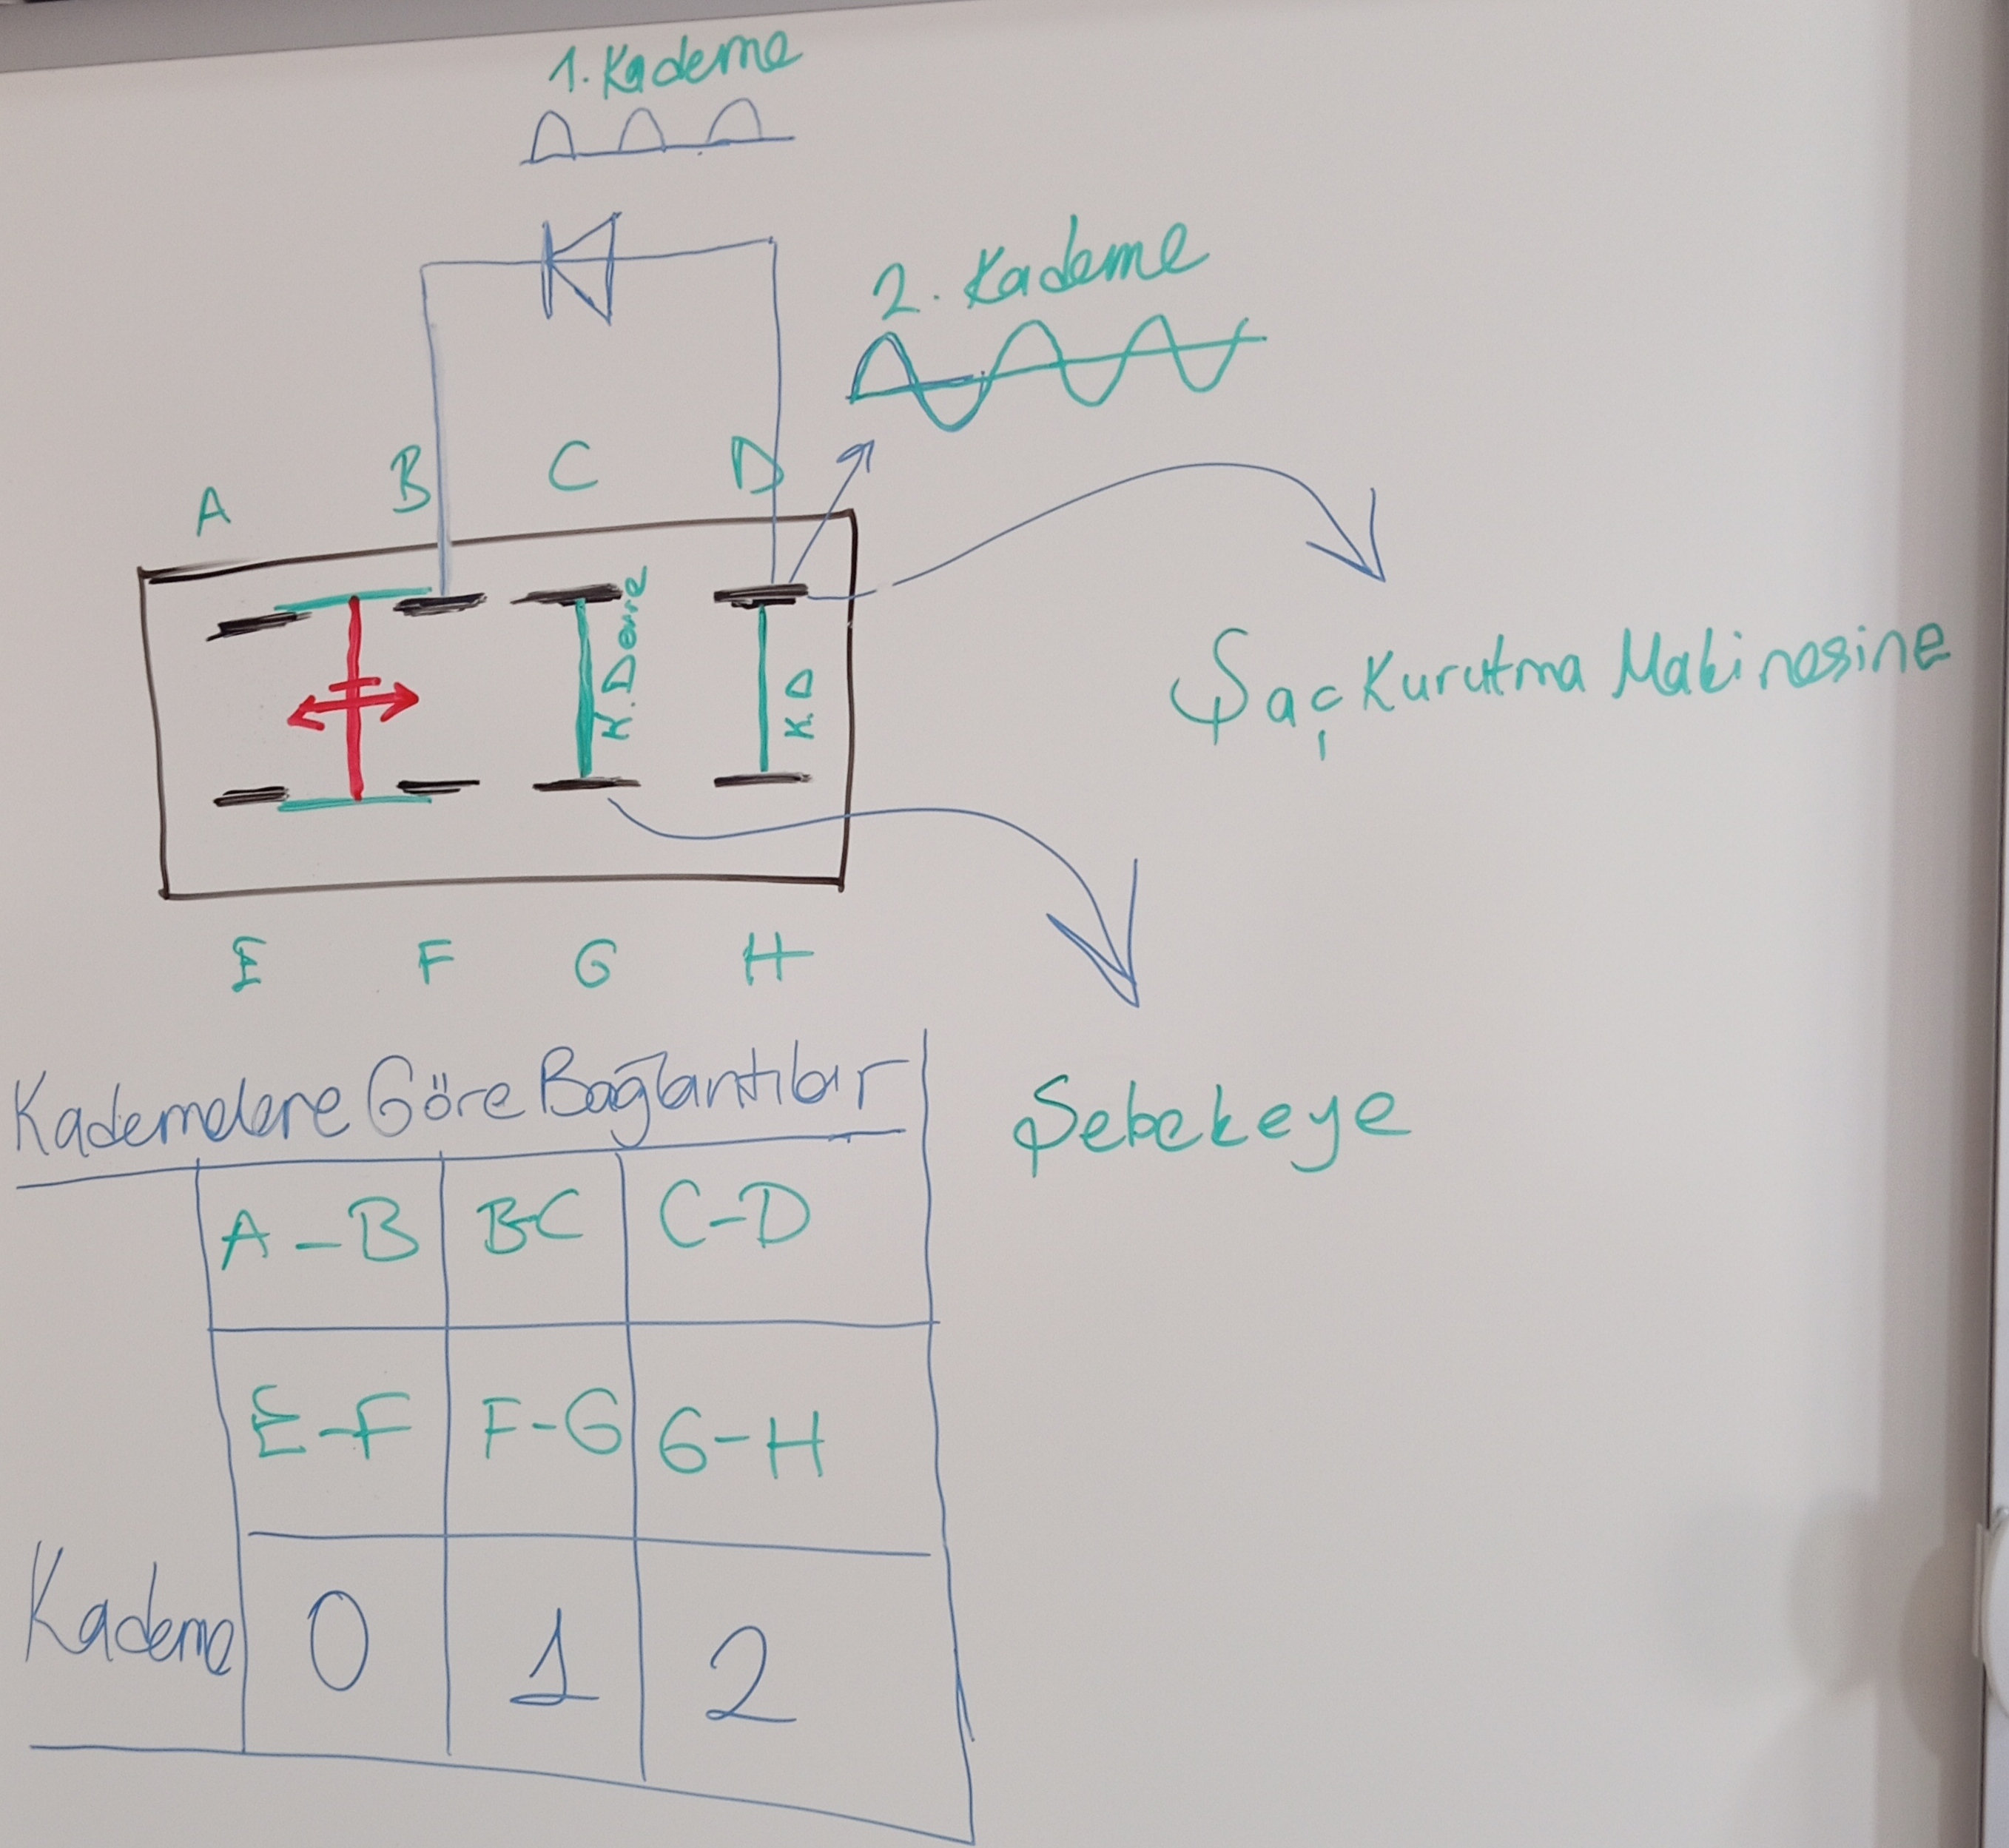 1. Kademe
2. Kademe
A B C D
K.Devre
K.D
Şaç Kurutma Makinesine
E F G H
Şebekeye
Kademelere Göre Bağlantılar
A-B BC C-D
E-F F-G G-H
Kademe 0 1 2